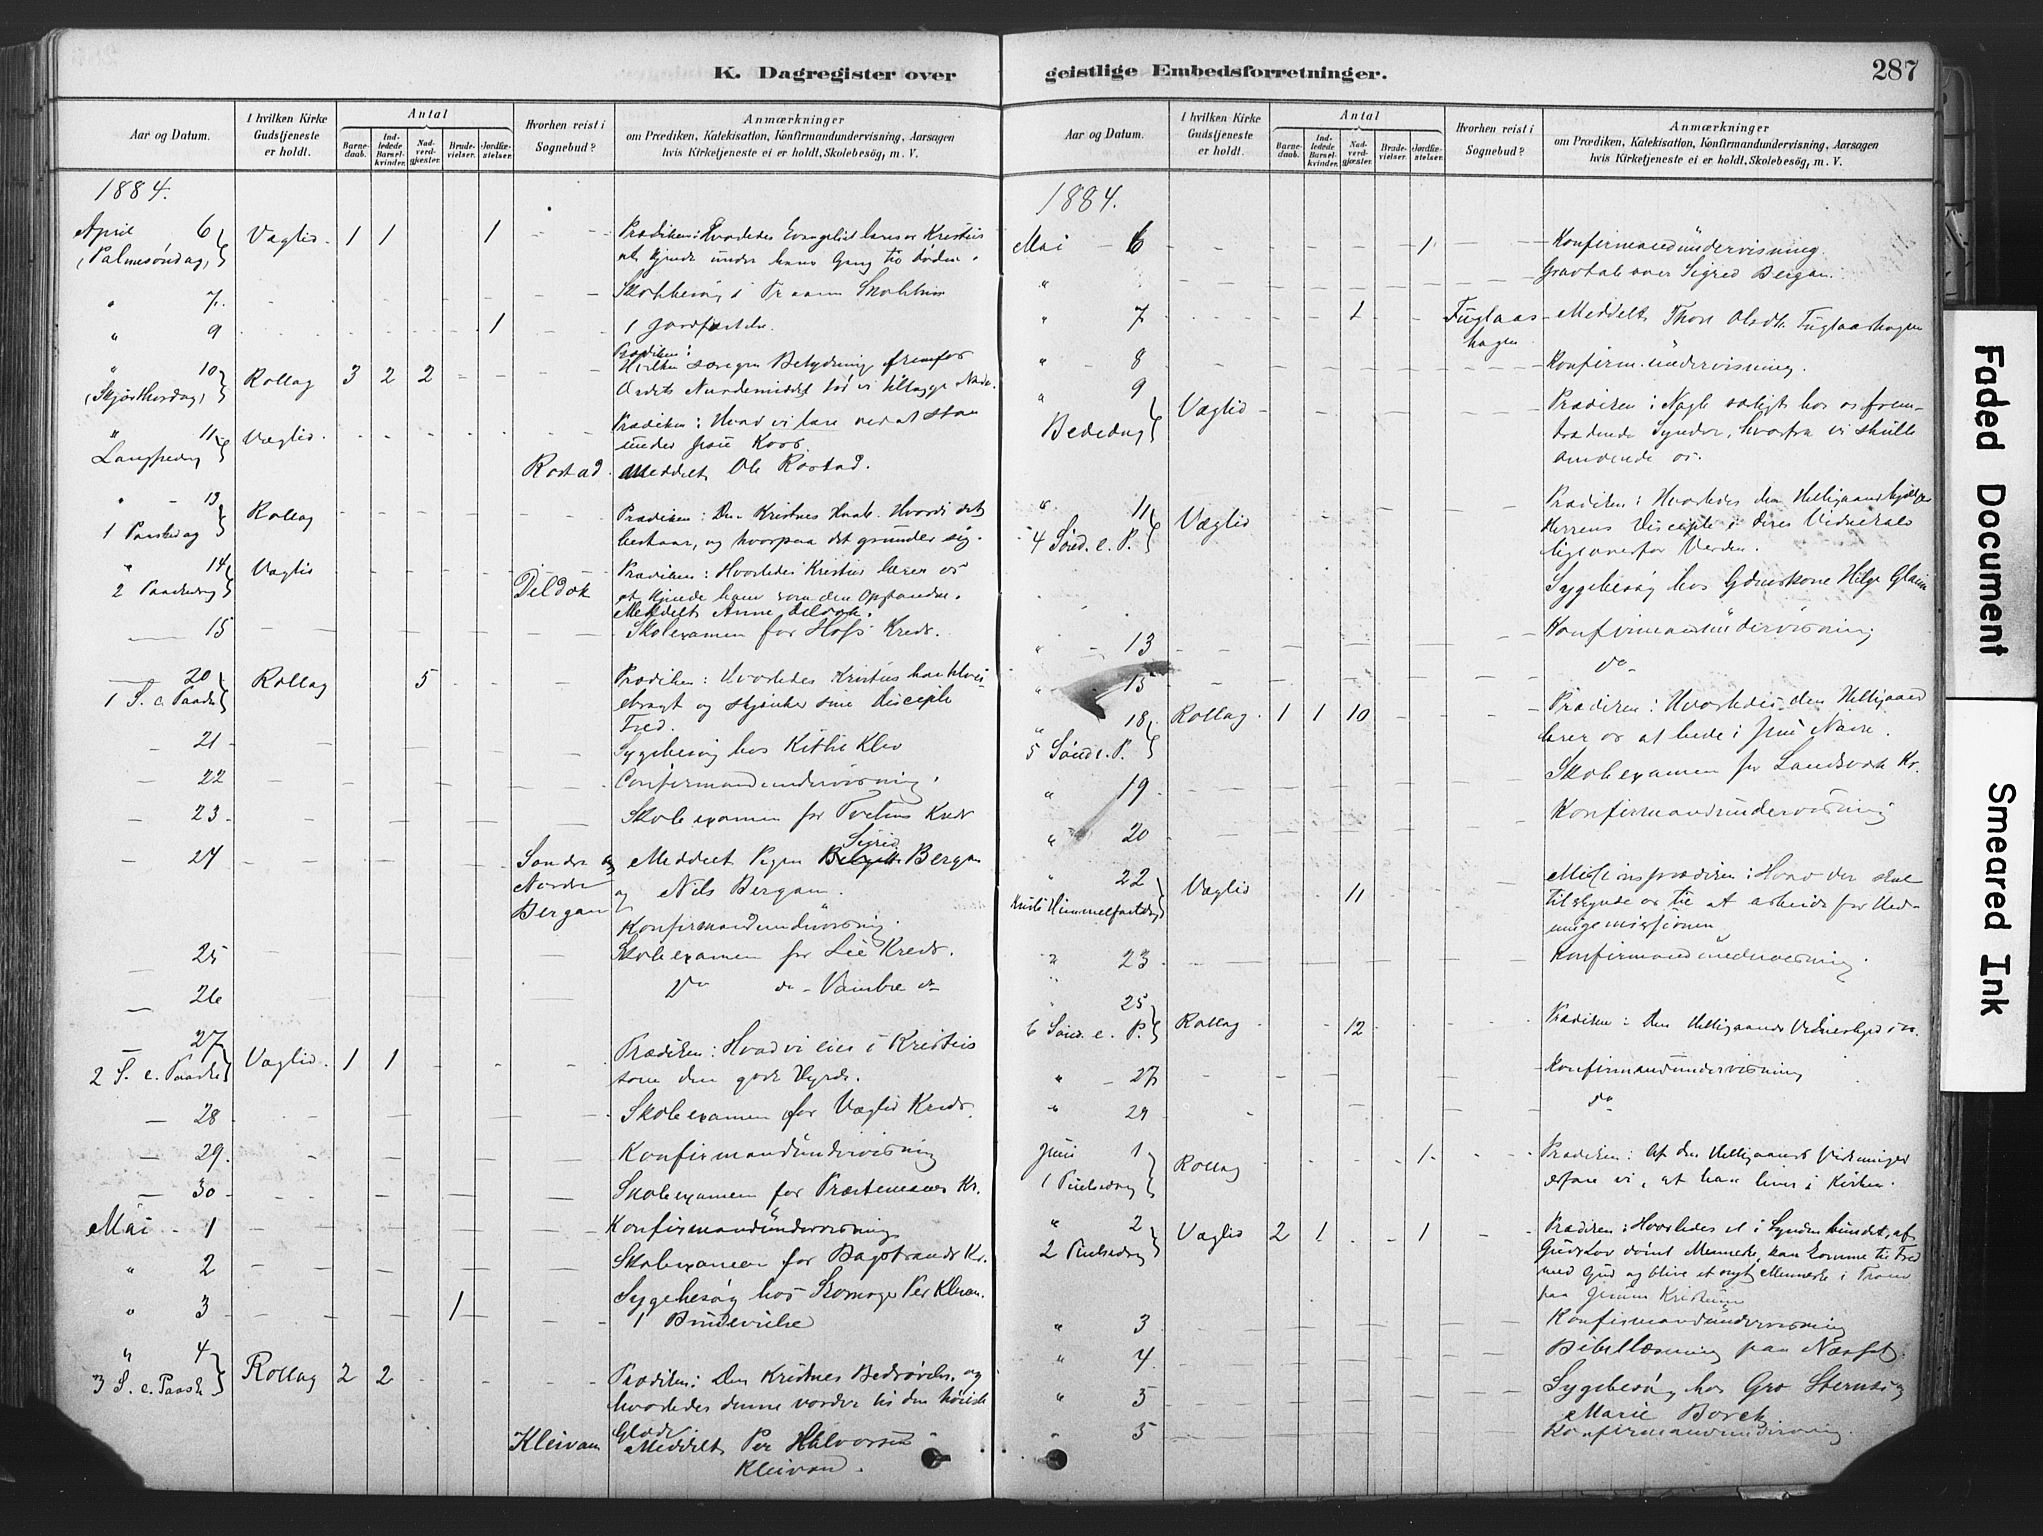 K. Dagregister over
Aar og Datum.
I hvilken Kirke Gudstjeneste er holdt.
Antal
Barnedaab.
Indledede Barselkvinder.
Nadverdgjester.
Brudevielser.
Jordfæstelser.
Hvorhen reist i Sognebud?
Anmærkninger
om Prædiken, Katekisation, Konfirmandundervisning, Aarsagen
hvis Kirketjeneste ei er holdt, Skolebesög, m. V.
1884.
April 6 Væglid 1 1 1 Prædiken: Hvorledes Evangeliet lærer os Kristus
(Palmesøndag) at kjende under hans Gang til Døden.
" 7 Skolebesøg i Traaen Skolehus
" 9 1 1 Jordfæstelse.
" 10 Rollag 3 2 2 Prædiken:
(Skjærthorsdag) Hvilken særegen Betydning fremfor
Ordets Naademiddel
" 11 Væglid Prædiken: Hvad vi lære ved at staa
Langfredag under Jesu Kors.
Rostad Meddelt Ole Rostad.
" 13 Rollag Prædiken: Den Kristnes Haab. Hvori det
1 Paaskedag bestaar, og hvorpaa det grunder sig.
" 14 Væglid Prædiken: Hvorledes Kristus lærer os
2 Paaskedag Dildok at kjende ham som den Opstandne.
Meddelt Anne Dildok.
15 Skoleexamen for Hofs Kreds.
20 Rollag 5 Prædiken: Hvorledes Kristus har
1 S. e. Paaske og skjænker sine Disciple
Fred.
21 Sygebesøg hos Kittil Klev
22 Confirmandundervisning.
23 Skoleexamen for Tveitens Kreds
24 Søndre og Meddelt Pigen Sigrid Bergan
Nordre og Nils Bergan.
Bergan Konfirmandundervisning
25 Skoleexamen for Lie Kreds.
26 do do Vambre do
27 Væglid 1 1 Prædiken: Hvad vi eier i Kristus
2 S. e. Paaske som den gode Hyrde.
28 Skoleexamen for Væglid Kreds.
29 Konfirmandundervisning
30 Skoleexamen for Præstemoens Kr.
Mai 1 Konfirmandundervisning
" 2 Skoleexamen for Bagstrands Kr.
" 3 1 Sygebesøg hos Skomager Per Kleivan.
1 Brudevielse
" 4 Rollag 2 2 Prædiken: Den Kristnes Bedrøvelse, og
3 S. e. Paaske hvorledes denne vorder til den høieste
Glæde.
Kleivan Meddelt Per Halvorsen
Kleivan.
geistlige Embedsforretninger.
287
Aar og Datum.
I hvilken Kirke Gudstjeneste er holdt.
Antal
Barnedaab.
Indledede Barselkvinder.
Nadverdgjæster.
Brudevielser.
Jordfæstelser.
Hvorhen reist i Sognebud?
Anmærkninger
om Prædiken, Katekisation, Konfirmandundervisning, Aarsagen
hvis Kirketjeneste ei er holdt, Skolebesög, m. V.
1884.
Mai 6 1 Konfirmandundervisning.
" Gravtale over Sigrid Bergan.
" 7 1 Fuglaas Meddelt Thore Olsdt. Fuglaashagen
hagen
" 8 Konfirm.undervisning.
" 9 Væglid Prædiken: Nogle særligt hos os frem-
Bededag trædende Synder, hvorfra vi skulle
omvende os.
" 11 Væglid Prædiken: Hvorledes den Helligaand hjælper
4 Sønd. e. P. Herrens Disciple i deres Vidnekald
ligeoverfor Verden.
Sygebesøg hos Helge
" 13 Konfirmandundervisning
" 15 do
" 18 Rollag 1 1 10 Prædiken: Hvorledes den Helligaand
5 Sønd e. P. lærer os at bede i Jesu Navn.
" 19 Skoleexamen for Landsværk Kr.
" 20 Konfirmandundervisning
" 22 Væglid 11 Missionsprædiken: Hvad der skal
Kristi Himmelfartsdag tilskynde os til at arbeide for Hed-
ningemissionen
" 23 Konfirmandundervisning.
" 25 Rollag 12 Prædiken: Den Helligaands Vidnesbyrd i os.
6 Sønd. e. P.
" 27 Konfirmandundervisning
" 29 do
Juni 1 Rollag 1 Prædiken: Af den Helligaands Virkninger
1 Pintsedag erfare vi, at han lever i Kirken.
" 2 Væglid 2 1 1 Prædiken: Hvorledes et i Synden bundet, af
2 Pintsedag Guds Lov dømt Menneske, kan komme til Fred
med Gud og blive et nyt Menneske i Troen
paa Jesum Kristum
" 3 Konfirmandundervisning
" 4 Bibellæsning paa Næsset.
" 5 Sygebesøg hos Gro og
Marie Borek
" 5 Konfirmandundervisning.
Faded Document
Smeared Ink